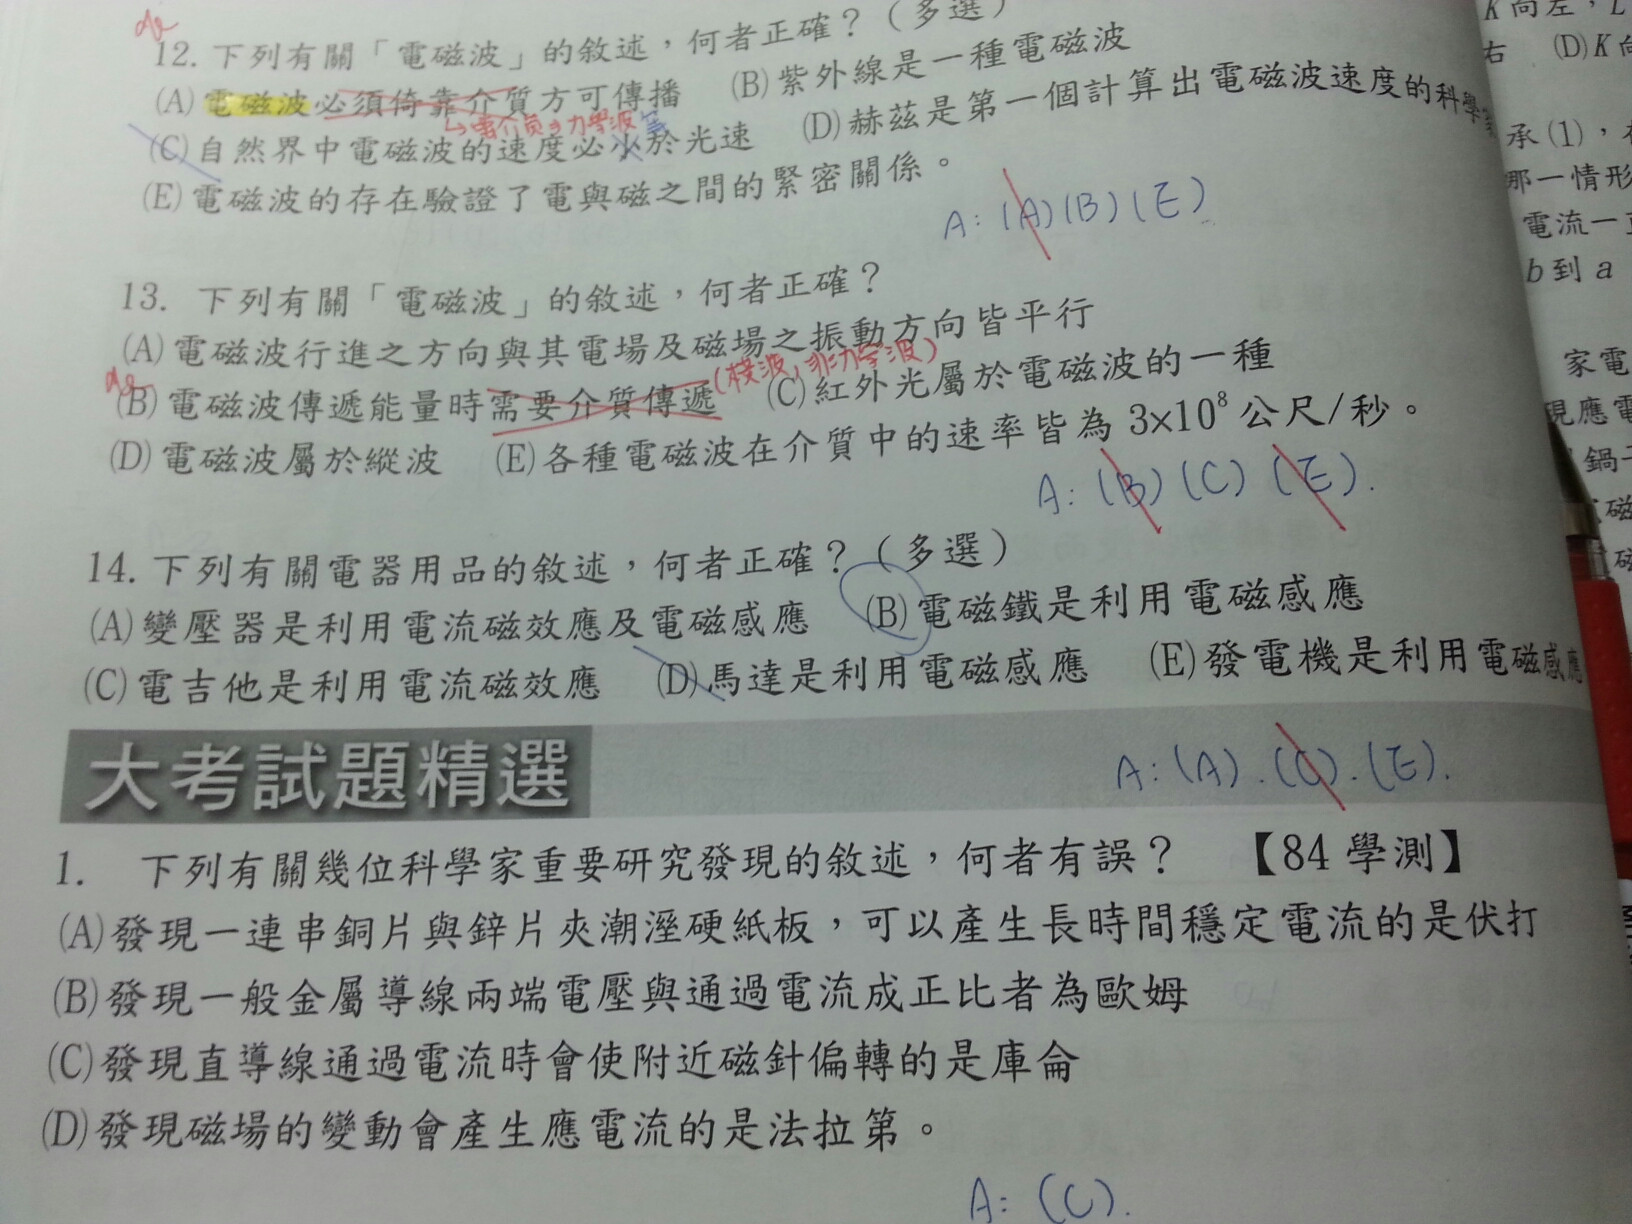 12. 下列有關「電磁波」的敘述，何者正確？（多選）
(A)電磁波必須倚靠介質方可傳播　(B)紫外線是一種電磁波
(C)自然界中電磁波的速度必小於光速　(D)赫茲是第一個計算出電磁波速度的科學家
(E)電磁波的存在驗證了電與磁之間的緊密關係。
A: (A)(B)(E)
13. 下列有關「電磁波」的敘述，何者正確？
(A)電磁波行進之方向與其電場及磁場之振動方向皆平行
(B)電磁波傳遞能量時需要介質傳遞　(C)紅外光屬於電磁波的一種
(D)電磁波屬於縱波　(E)各種電磁波在介質中的速率皆為 3×10⁸ 公尺/秒。
A: (B)(C)(E).
14. 下列有關電器用品的敘述，何者正確？（多選）
(A)變壓器是利用電流磁效應及電磁感應　(B)電磁鐵是利用電磁感應
(C)電吉他是利用電流磁效應　(D)馬達是利用電磁感應　(E)發電機是利用電磁感應
A: (A).(C).(E).
大考試題精選
1. 下列有關幾位科學家重要研究發現的敘述，何者有誤？【84 學測】
(A)發現一連串銅片與鋅片夾潮溼硬紙板，可以產生長時間穩定電流的是伏打
(B)發現一般金屬導線兩端電壓與通過電流成正比者為歐姆
(C)發現直導線通過電流時會使附近磁針偏轉的是庫侖
(D)發現磁場的變動會產生應電流的是法拉第。
A: (C).
K向左，
右　(D)K
承(1)，
那一情形
電流一
b到 a
家電
現應電
鍋
磁